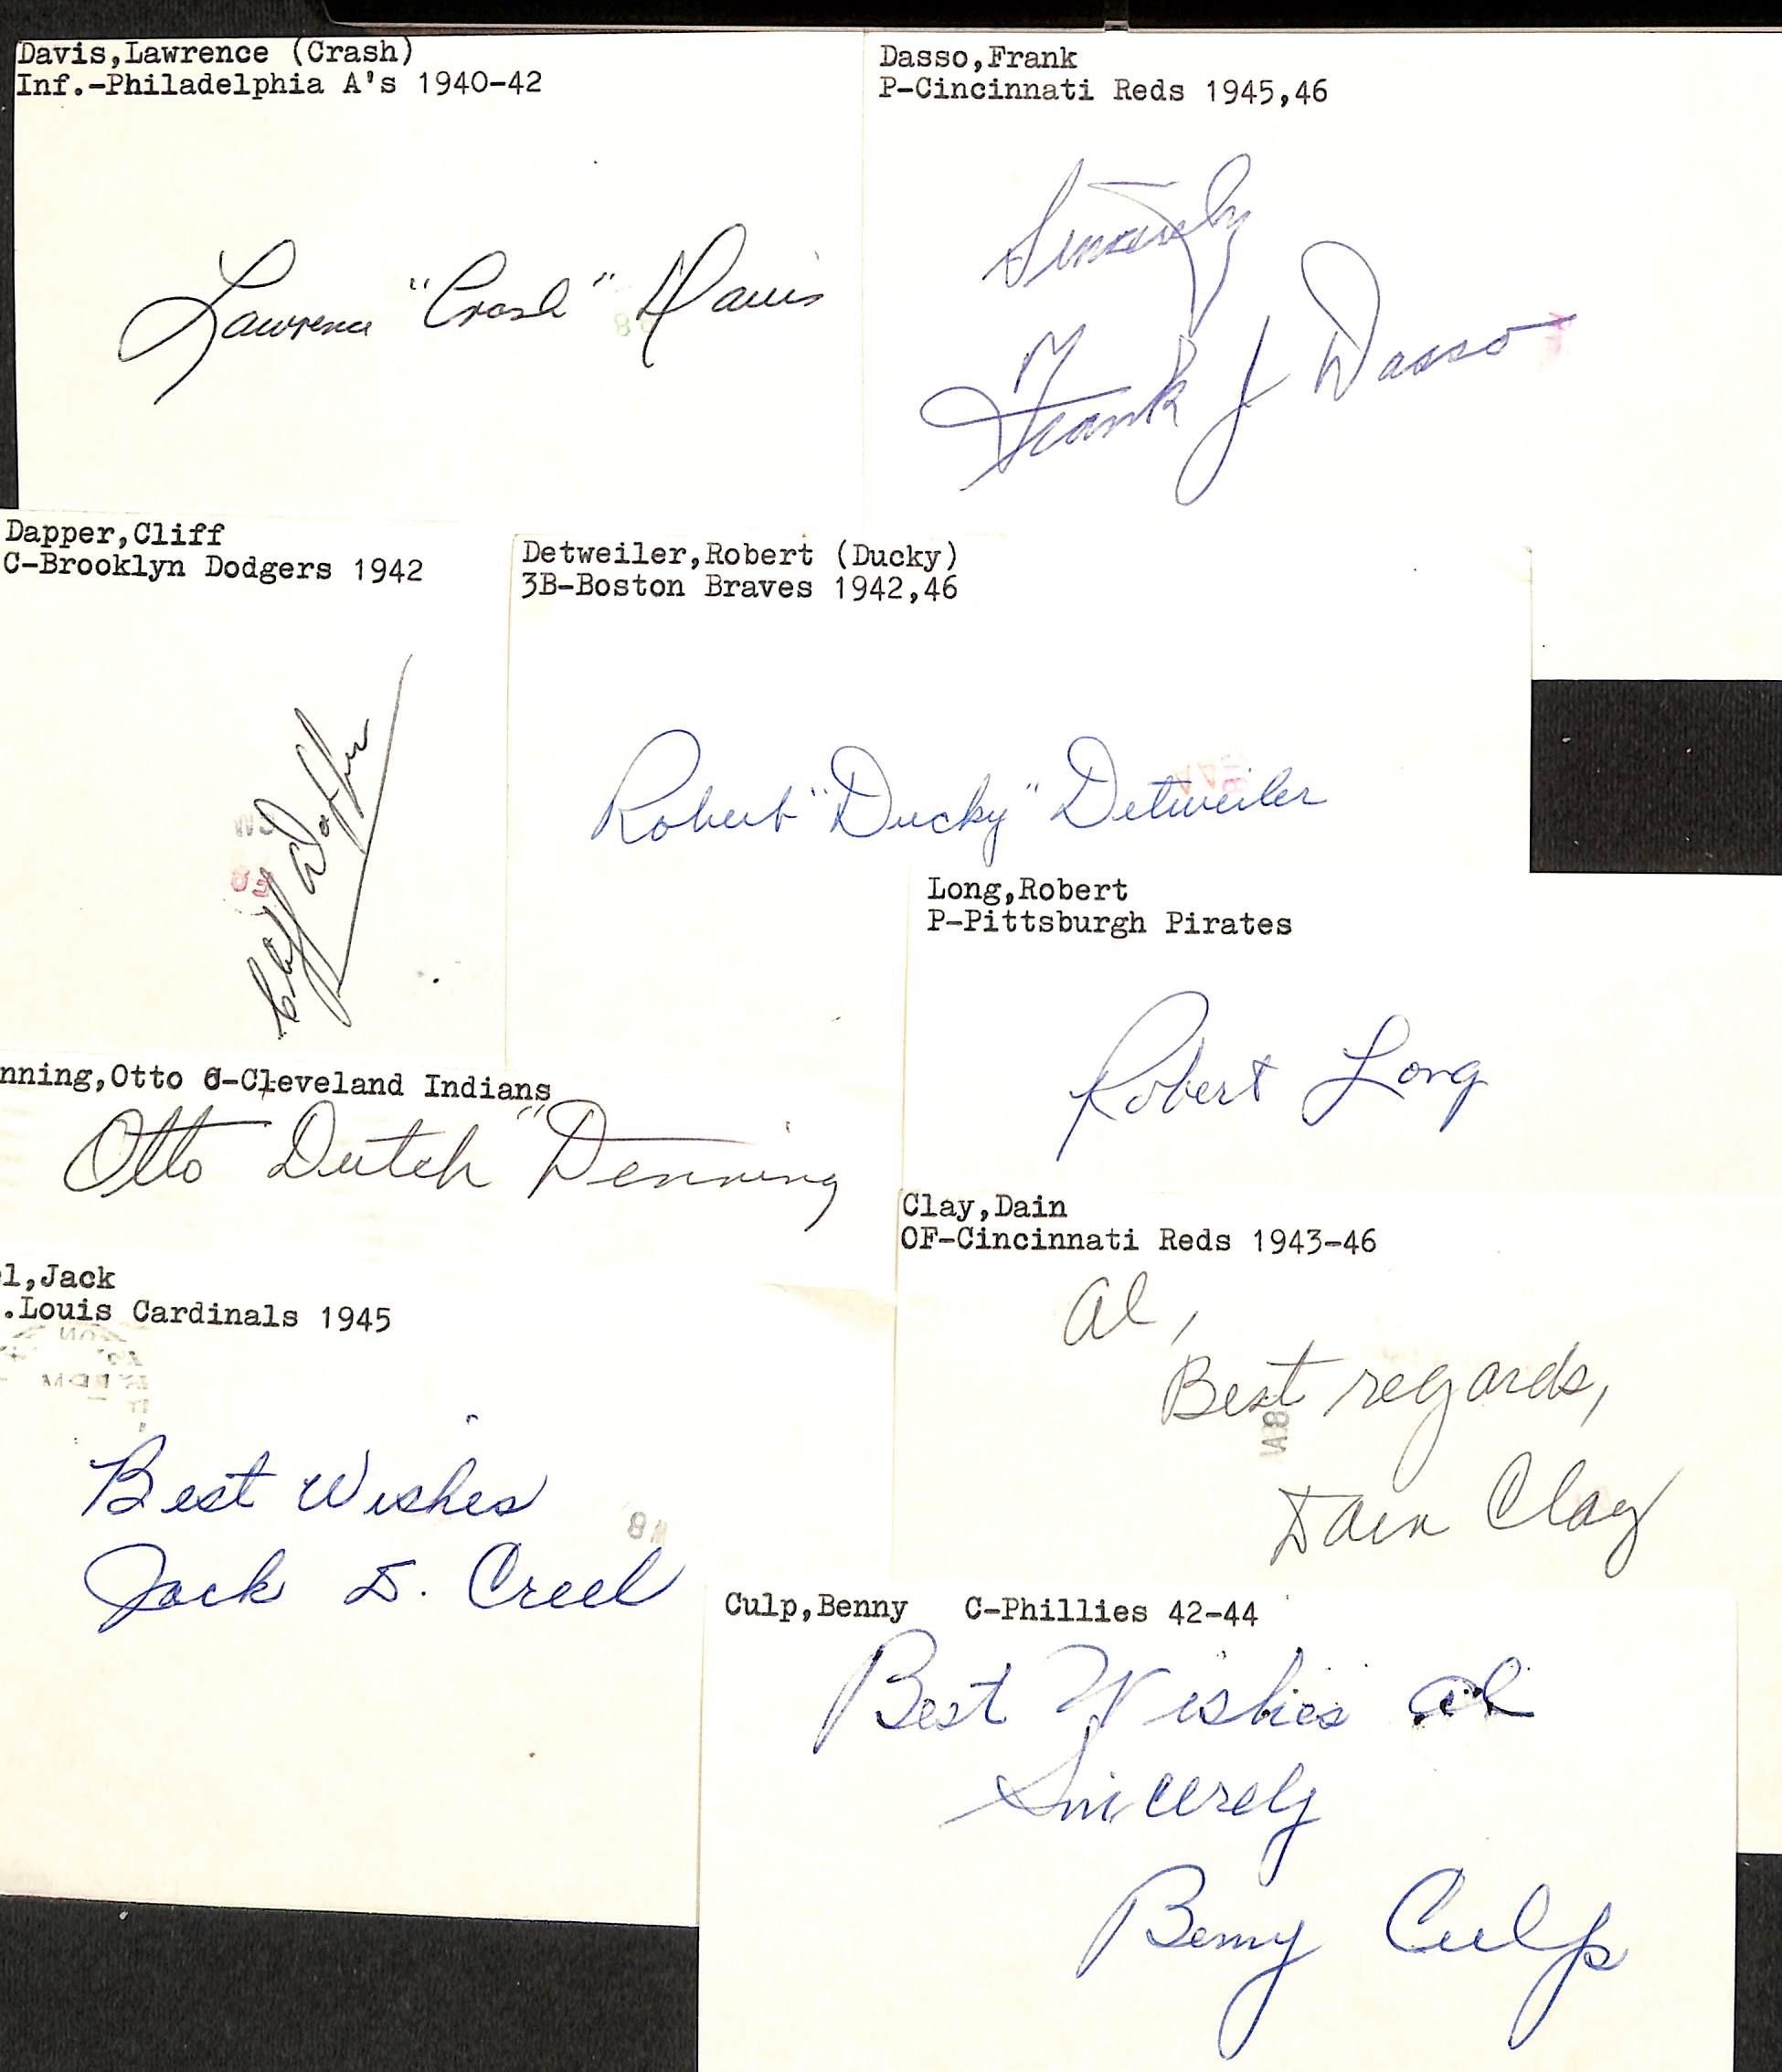 Davis,Lawrence (Crash)
Inf.-Philadelphia A's 1940-42
Lawrence "Crash" Davis
Dasso,Frank
P-Cincinnati Reds 1945,46
Sincerely
Frank J Dasso
Dapper,Cliff
C-Brooklyn Dodgers 1942
Cliff Dapper
Detweiler,Robert (Ducky)
3B-Boston Braves 1942,46
Robert "Ducky" Detweiler
Long,Robert
P-Pittsburgh Pirates
Robert Long
nning,Otto C-Cleveland Indians
Otto Dutch" Denning
Clay,Dain
OF-Cincinnati Reds 1943-46
Al,
Best regards,
Dain Clay
l,Jack
.Louis Cardinals 1945
Best Wishes
Jack D. Creel
Culp,Benny C-Phillies 42-44
Best Wishes Al
Sincerely
Benny Culp